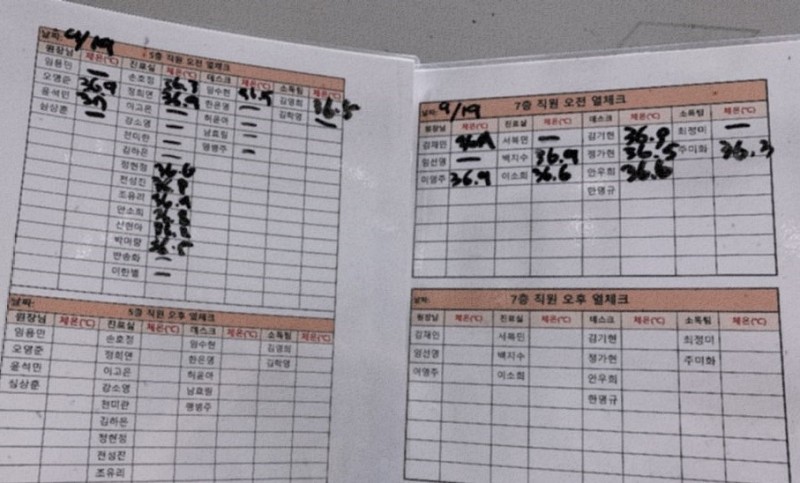 날짜: 9/19 5층 직원 오전 열체크
원장님 체온(℃) 진료실 체온(℃) 데스크 체온(℃) 소독팀 체온(℃)
임용민 — 손호정 36.7 임수현 김명희 36.5
오영준 36.9 정희연 36.9 한은영 — 김학영 —
윤석민 35 이고은 — 허윤아 —
심상훈 — 강소영 — 남효림 —
전미란 — 맹병주 —
김하은 —
정현정 36.6
전성진 36.8
조유리 36.9
안소희 36.8
신현아
박미향 36.5
반송화 —
이한별 —
날짜:
5층 직원 오후 열체크
원장님 체온(℃) 진료실 체온(℃) 데스크 체온(℃) 소독팀 체온(℃)
임용민 손호정 임수현 김명희
오영준 정희연 한은영 김학영
윤석민 이고은 허윤아
심상훈 강소영 남효림
전미란 맹병주
김하은
정현정
전성진
조유리
날짜: 9/19 7층 직원 오전 열체크
원장님 체온(℃) 진료실 체온(℃) 데스크 체온(℃) 소독팀 체온(℃)
김재인 서복민 — 김기현 36.8 최정미 —
임선영 — 백지수 36.9 정가현 36.5 주미화 36.3
이영주 36.9 이소희 36.6 안우희 36.6
한명규
날짜: 7층 직원 오후 열체크
원장님 체온(℃) 진료실 체온(℃) 데스크 체온(℃) 소독팀 체온(℃)
김재인 서복민 김기현 최정미
임선영 백지수 정가현 주미화
이영주 이소희 안우희
한명규